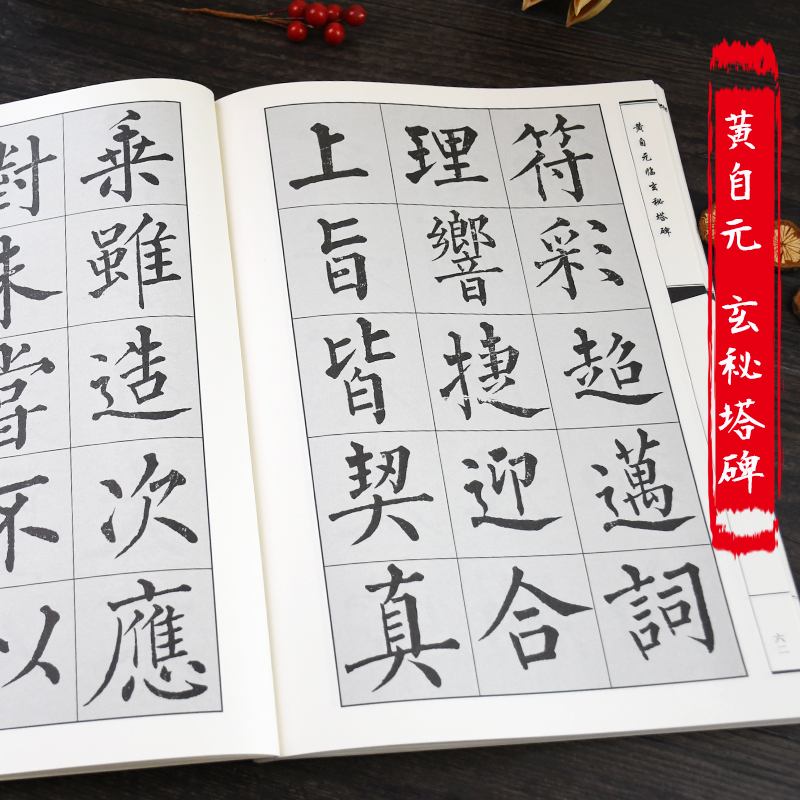 黄自元 玄秘塔碑
黄自元临玄秘塔碑
六二
符彩超邁詞
理響捷迎合
上旨皆契真
乘雖造次應
對未不以